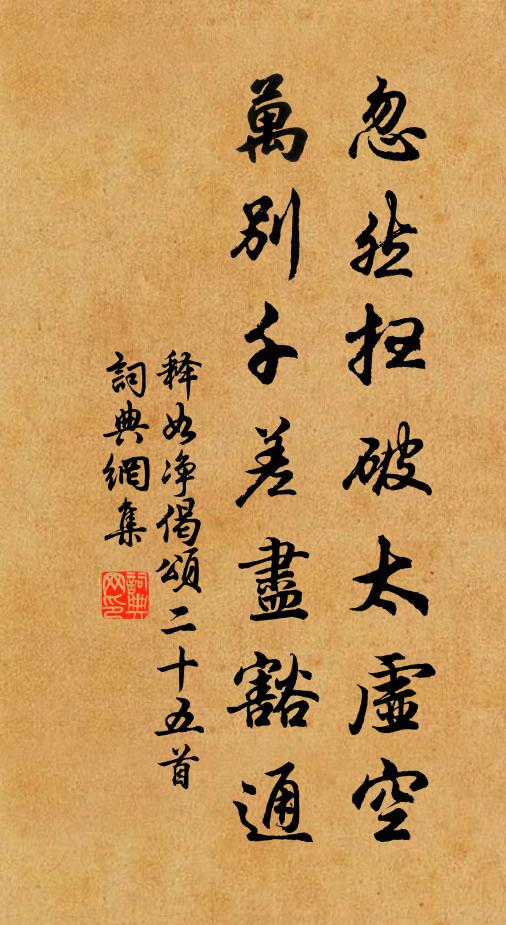 忽然扫破太虛空
萬別千差盡豁通
释如净偈頌二十五首
詞典網集
詞典网印